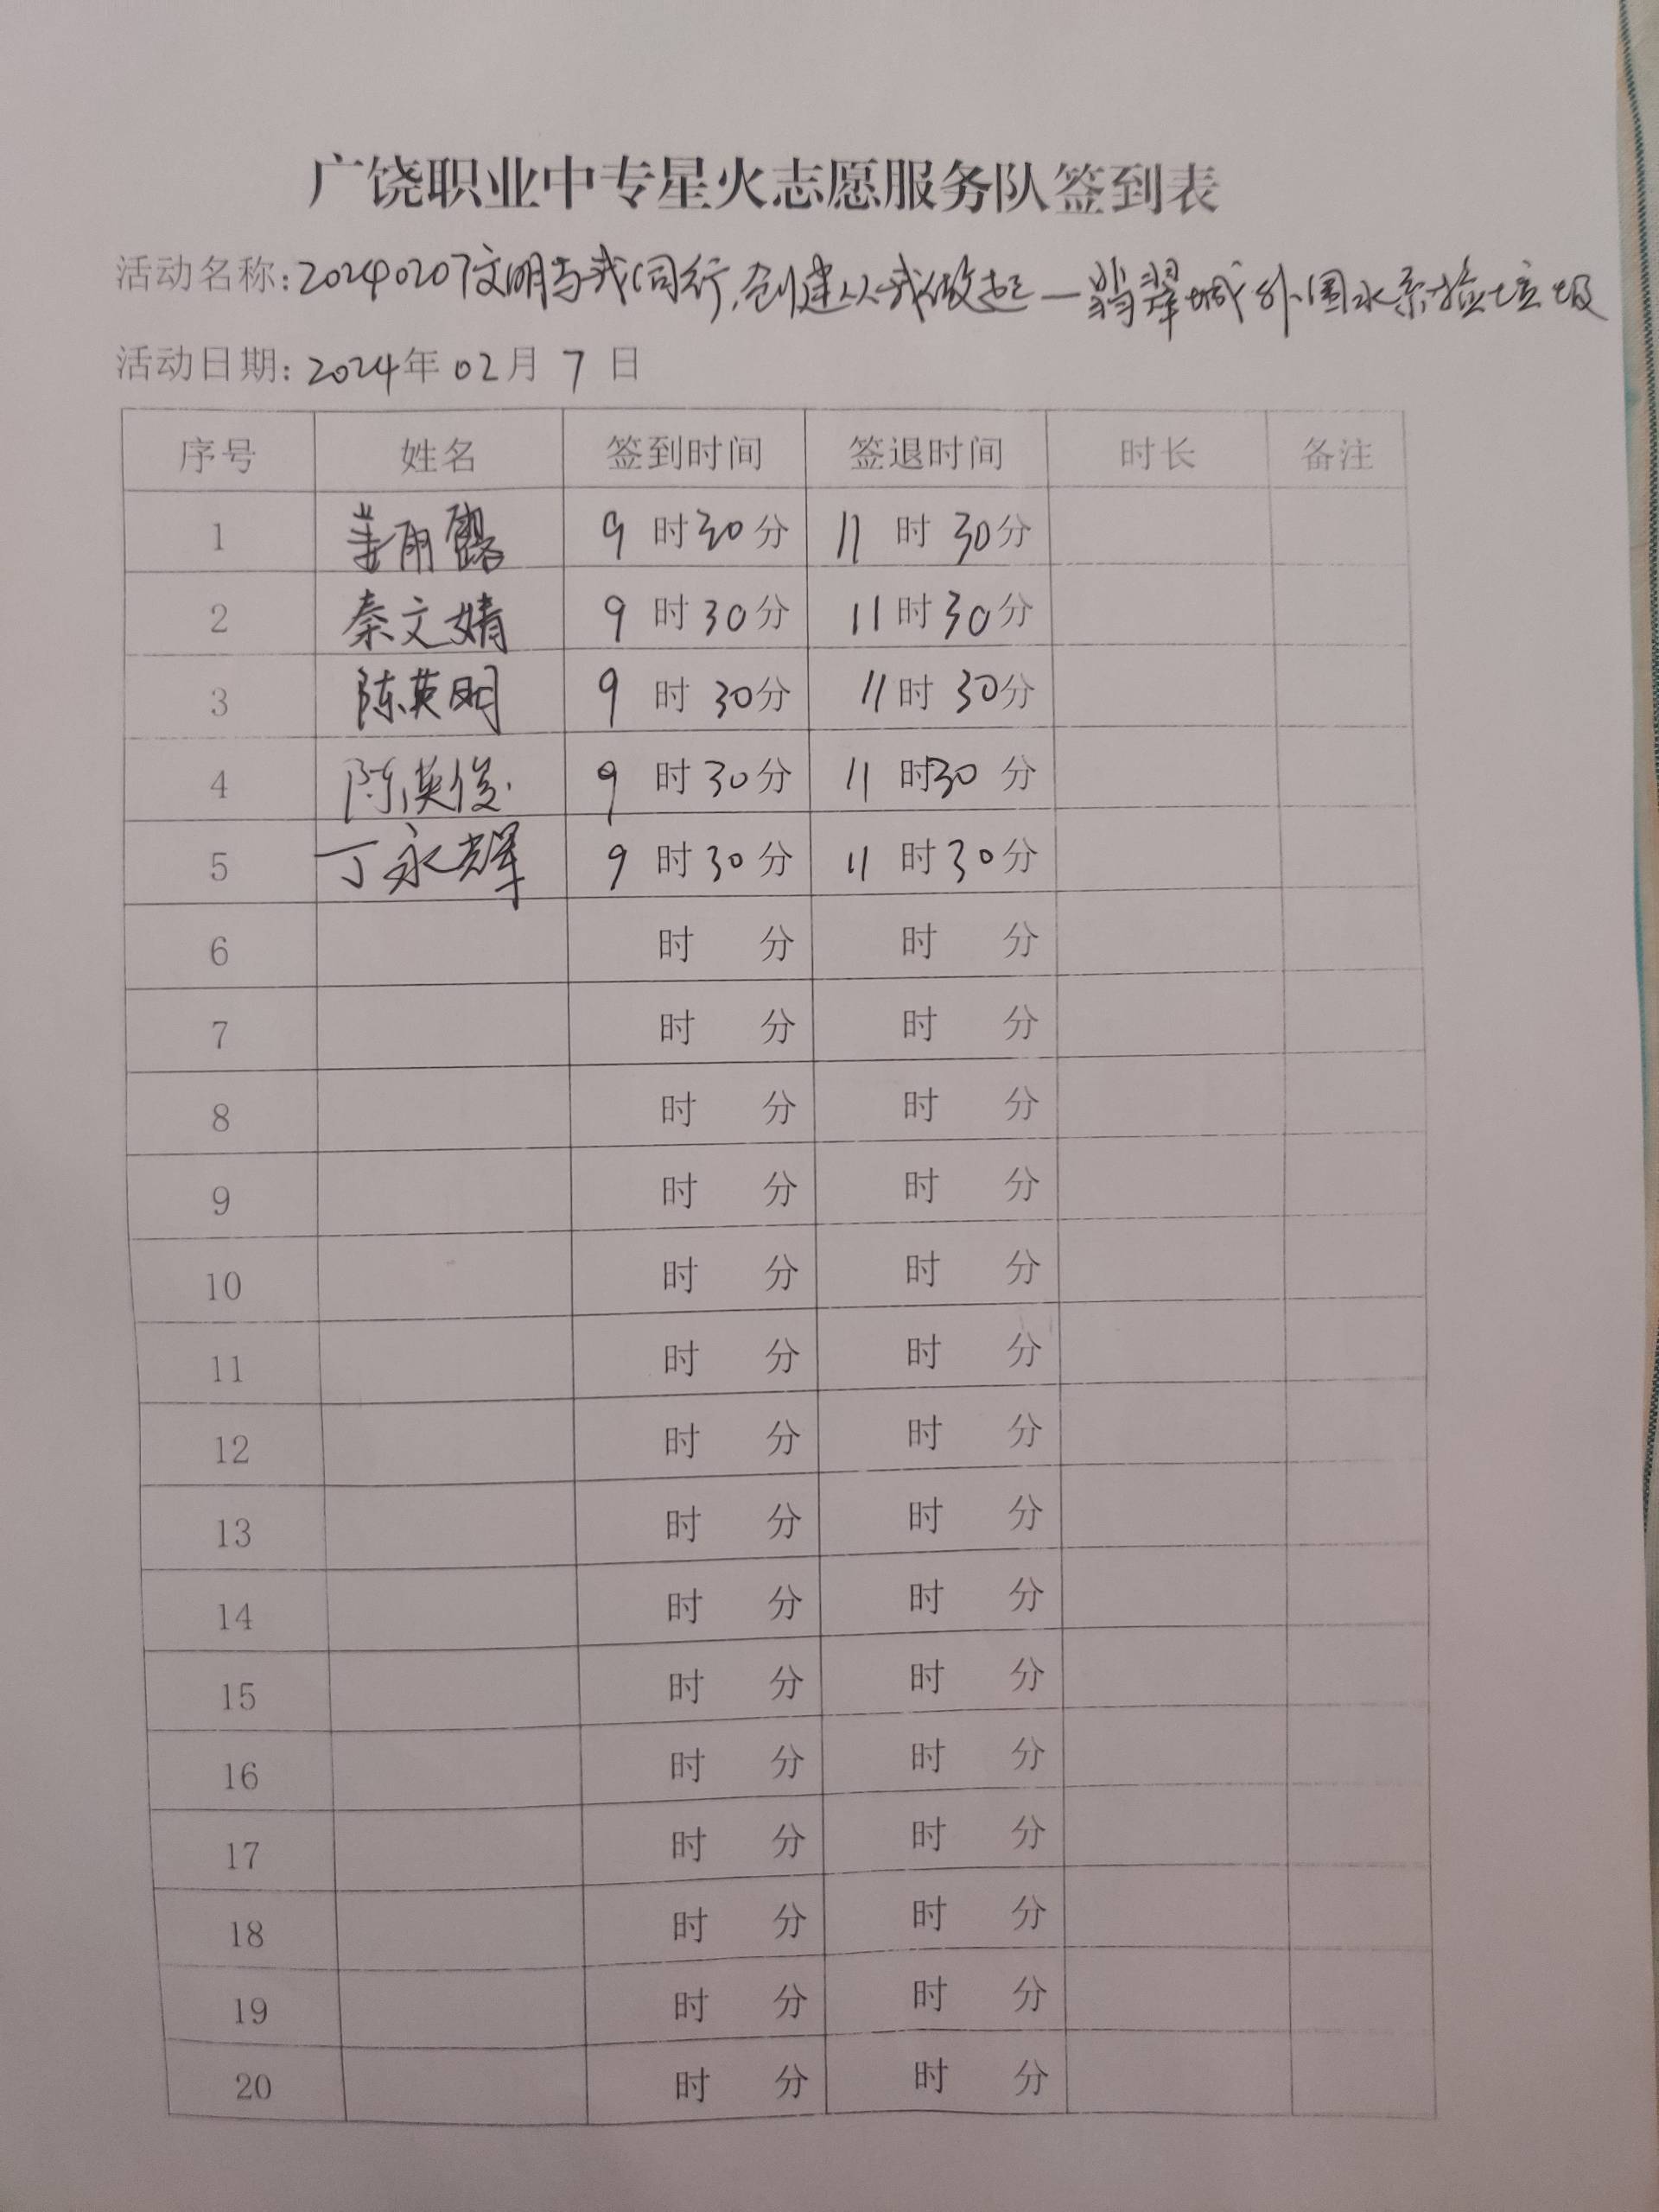 广饶职业中专星火志愿服务队签到表
活动名称:20240207文明与我同行,创建从我做起—翡翠城外围水系捡垃圾
活动日期:2024年02月7日
序号 姓名 签到时间 签退时间 时长 备注
1 姜雨露 9时30分 11时30分
2 秦文婧 9时30分 11时30分
3 陈英明 9时30分 11时30分
4 陈英俊 9时30分 11时30分
5 丁永辉 9时30分 11时30分
6 时 分 时 分
7 时 分 时 分
8 时 分 时 分
9 时 分 时 分
10 时 分 时 分
11 时 分 时 分
12 时 分 时 分
13 时 分 时 分
14 时 分 时 分
15 时 分 时 分
16 时 分 时 分
17 时 分 时 分
18 时 分 时 分
19 时 分 时 分
20 时 分 时 分